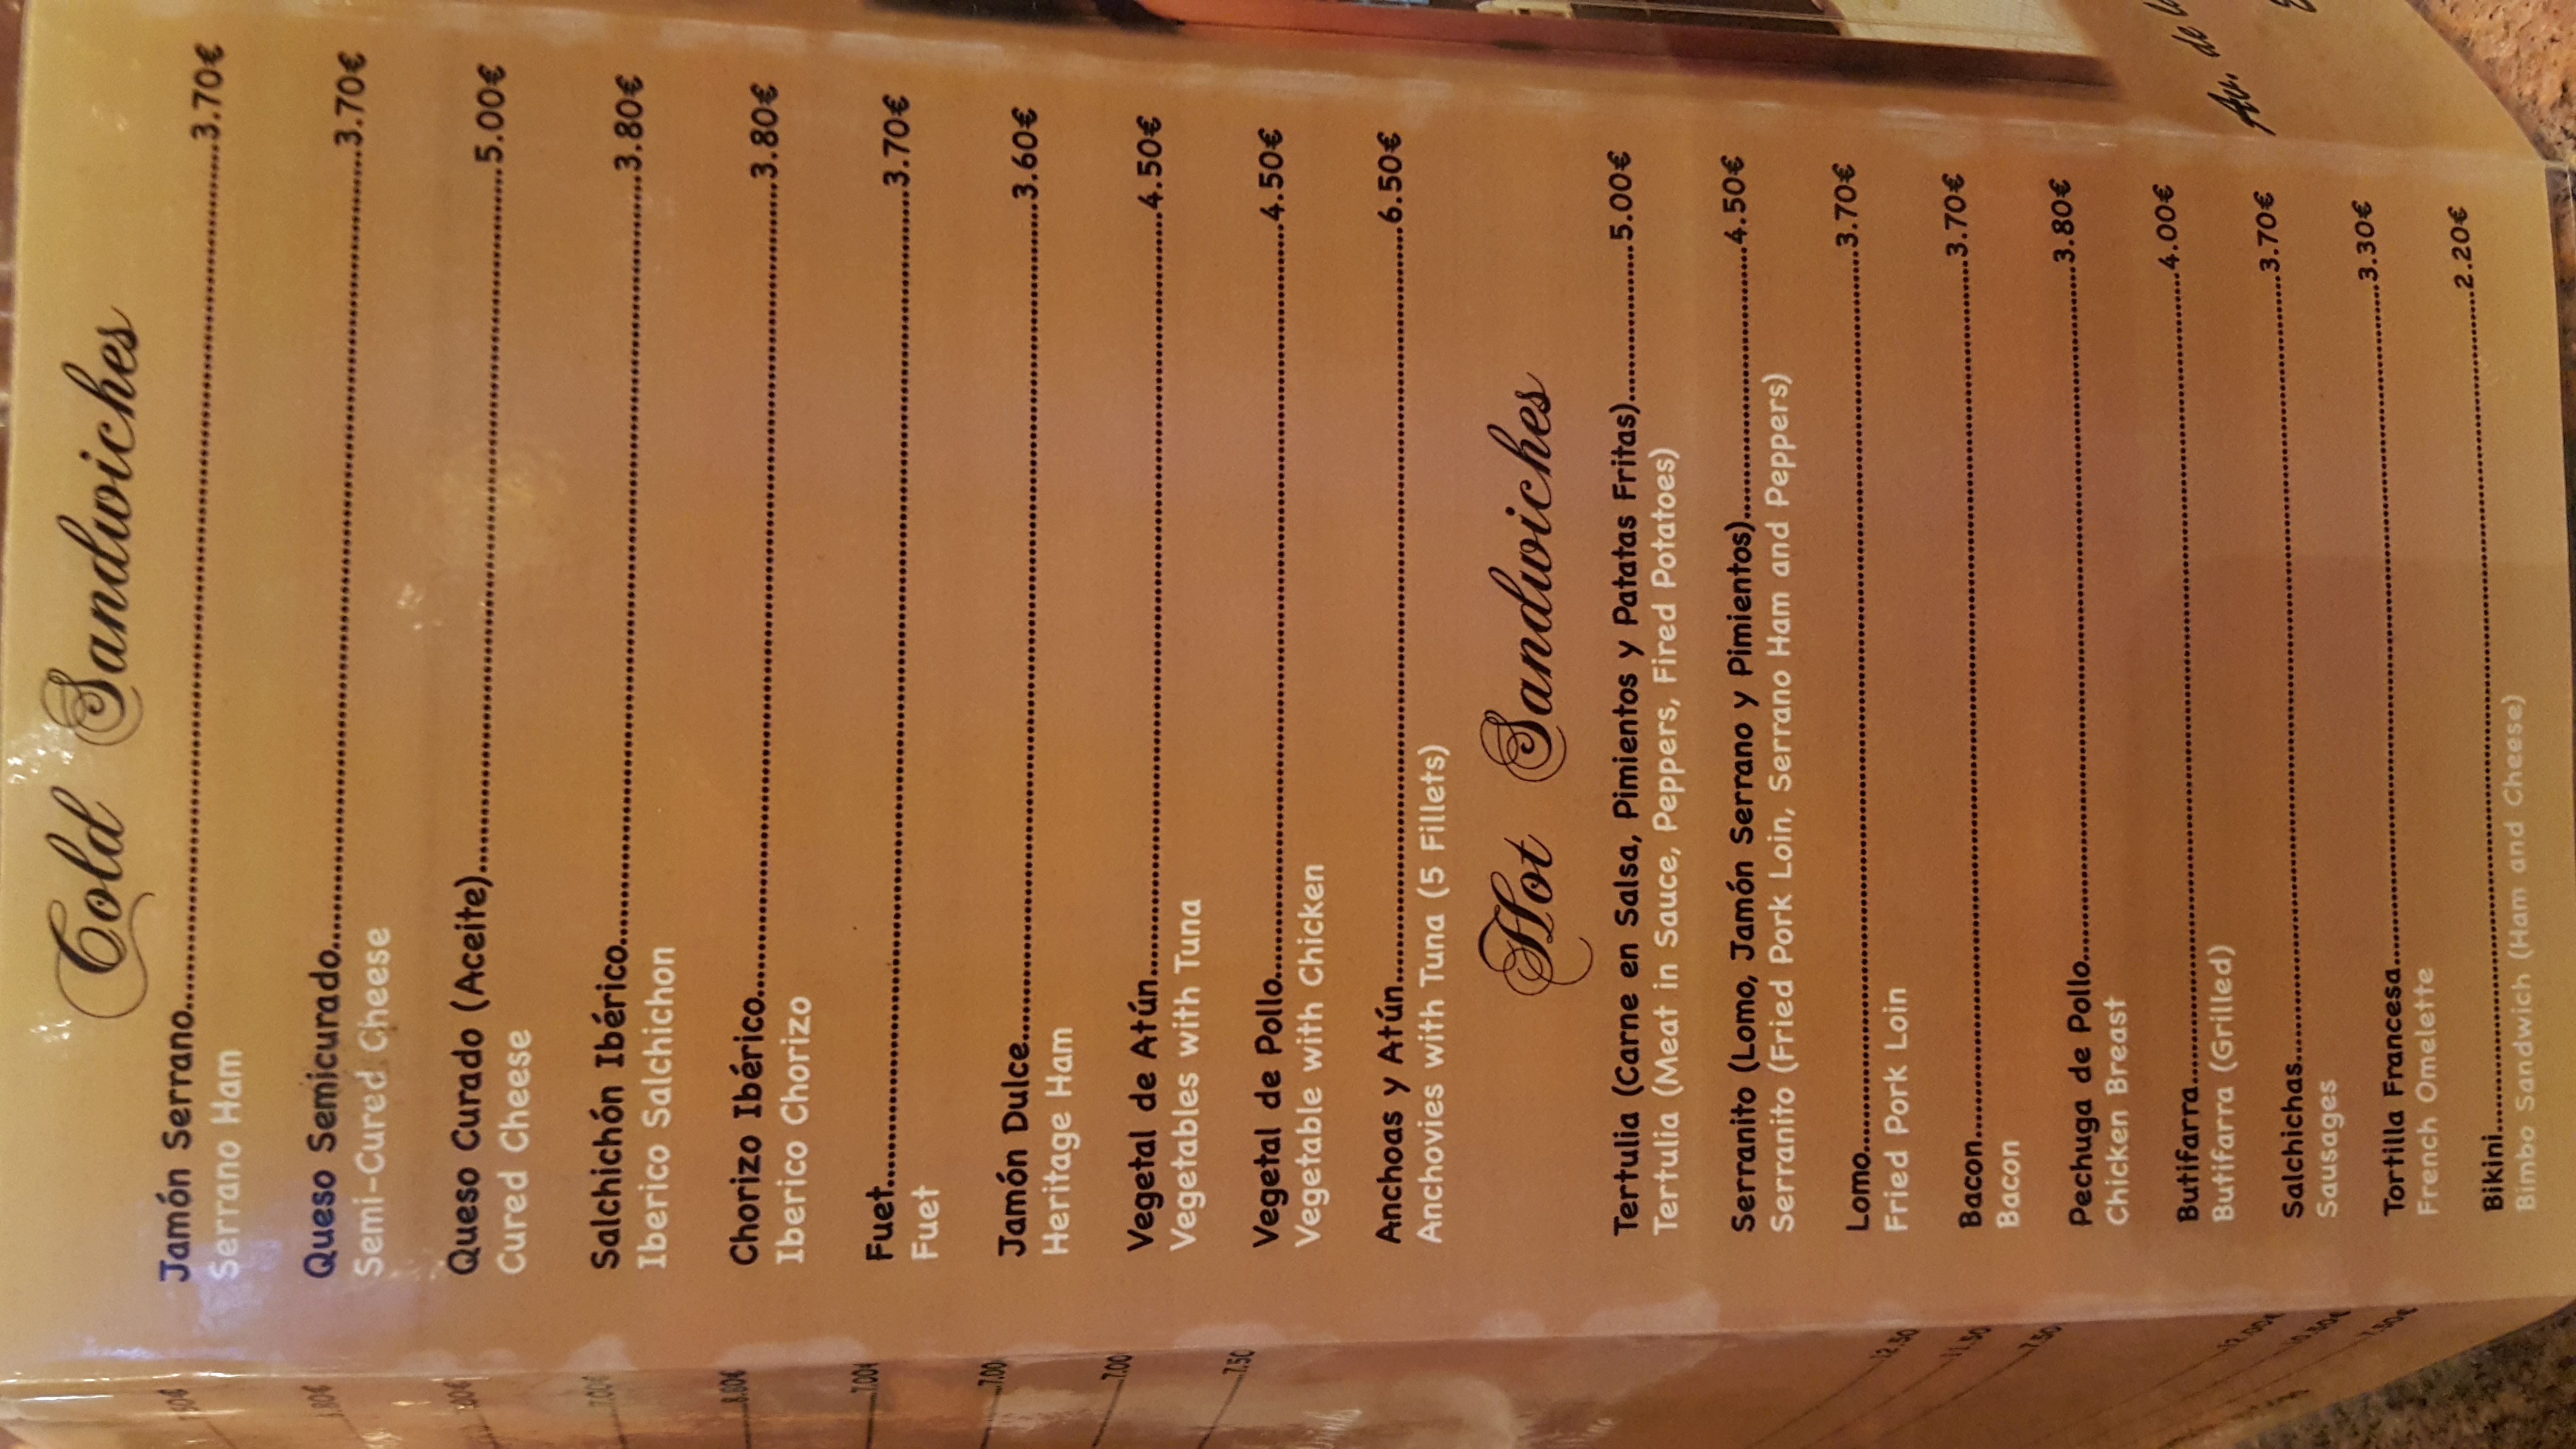 Cold Sandwiches
Jamón Serrano..........3.70€
Serrano Ham
Queso Semicurado..........3.70€
Semi-Cured Cheese
Queso Curado (Aceite)..........5.00€
Cured Cheese
Salchichón Ibérico..........3.80€
Iberico Salchichon
Chorizo Ibérico..........3.80€
Iberico Chorizo
Fuet..........3.70€
Fuet
Jamón Dulce..........3.60€
Heritage Ham
Vegetal de Atún..........4.50€
Vegetables with Tuna
Vegetal de Pollo..........4.50€
Vegetable with Chicken
Anchoas y Atún..........6.50€
Anchovies with Tuna (5 Fillets)
Hot Sandwiches
Tertulia (Carne en Salsa, Pimientos y Patatas Fritas)..........5.00€
Tertulia (Meat in Sauce, Peppers, Fired Potatoes)
Serranito (Lomo, Jamón Serrano y Pimientos)..........4.50€
Serranito (Fried Pork Loin, Serrano Ham and Peppers)
Lomo..........3.70€
Fried Pork Loin
Bacon..........3.70€
Bacon
Pechuga de Pollo..........3.80€
Chicken Breast
Butifarra..........4.00€
Butifarra (Grilled)
Salchichas..........3.70€
Sausages
Tortilla Francesa..........3.30€
French Omelette
Bikini..........2.20€
Bimbo Sandwich (Ham and Cheese)
8.80€
7.00€
7.00
7.00
7.50
12.50
11.50
7.50
12.00€
10.80€
7.80€
Av. de